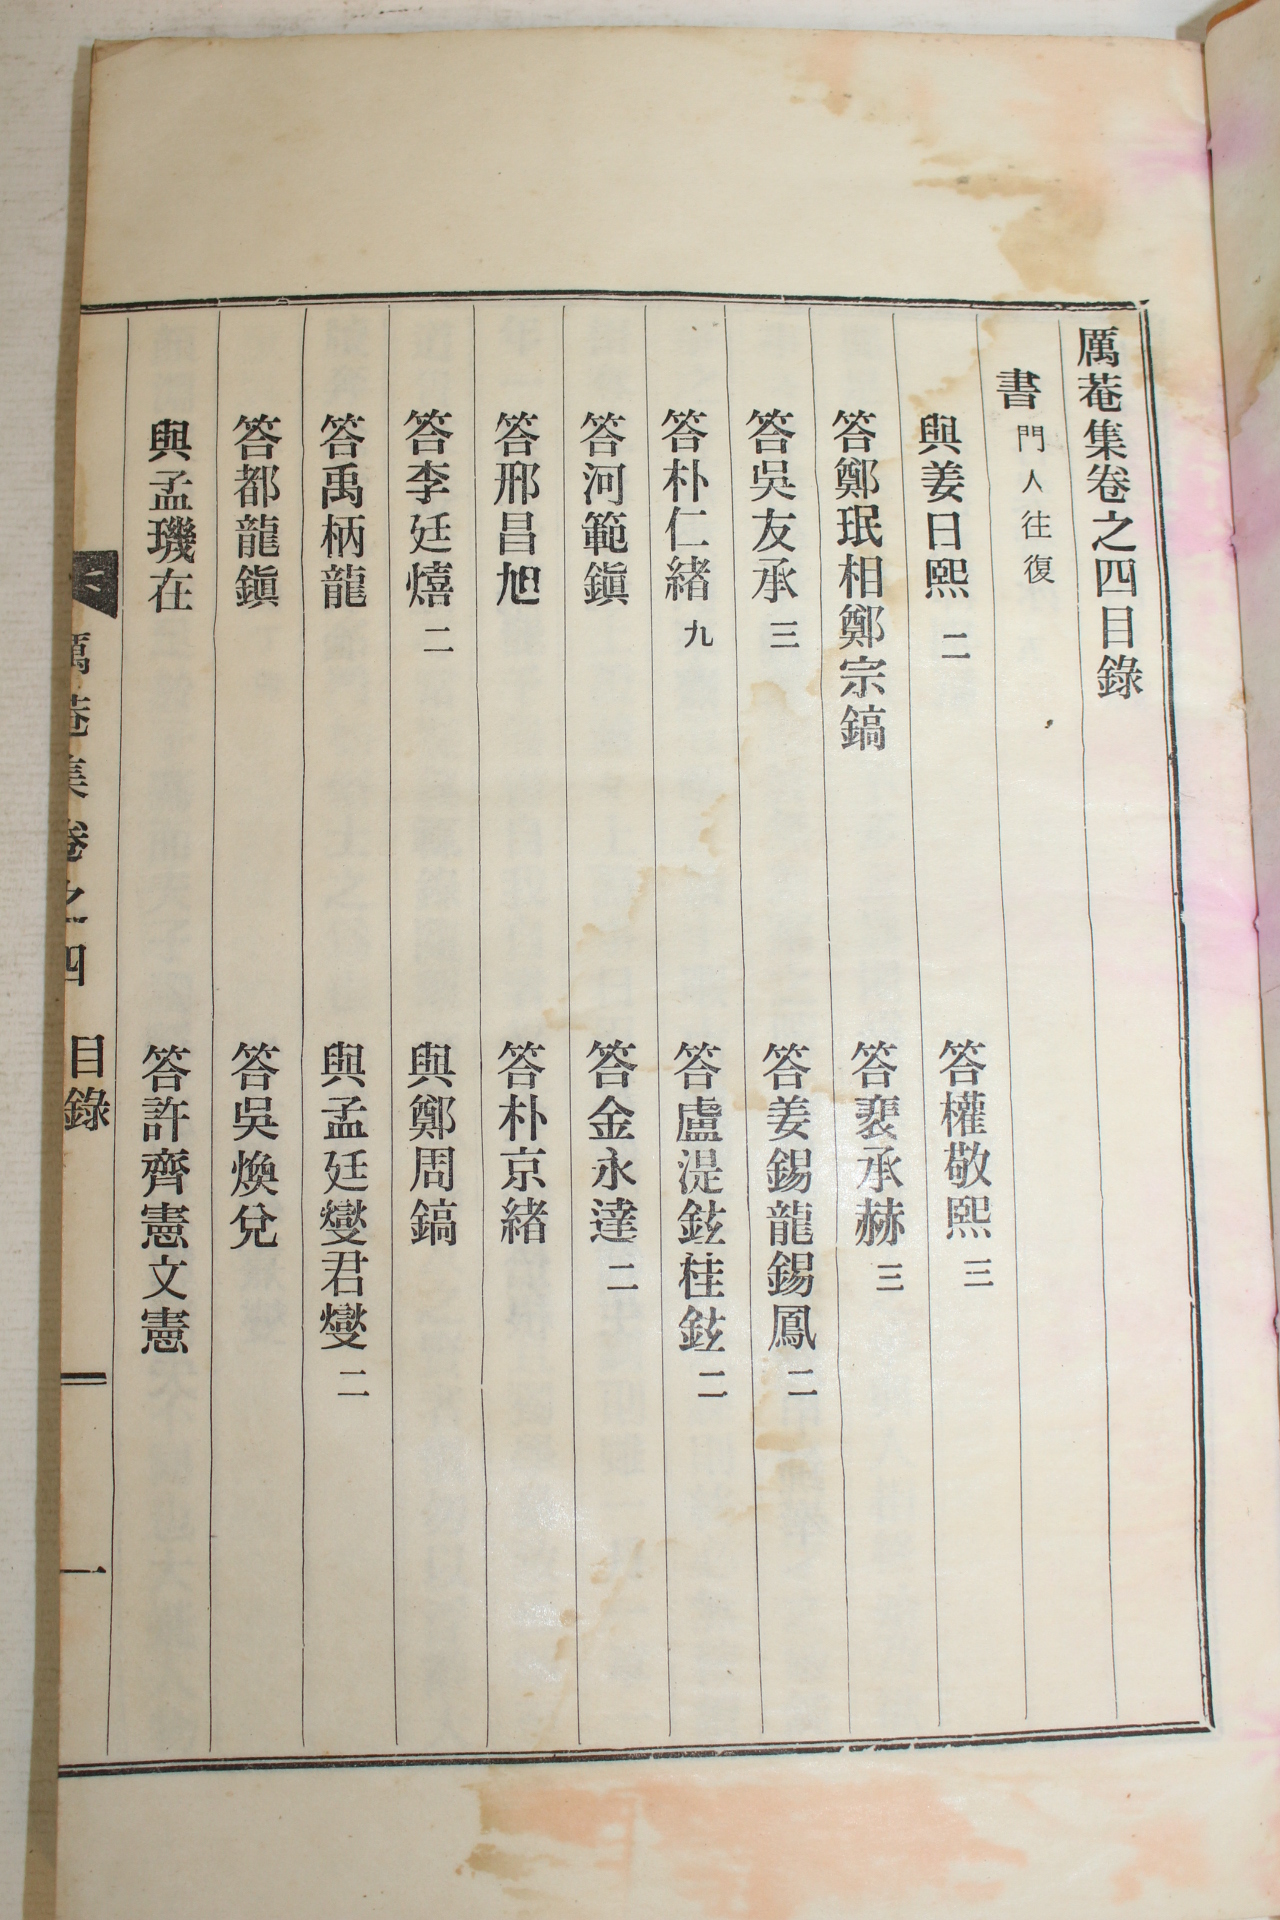 厲菴集卷之四目錄
書 門人往復
與姜日熙 二 答權敬熙 三
答鄭珉相鄭宗鎬 答裵承赫 三
答吳友承 三 答姜錫龍錫鳳 二
答朴仁緖 九 答盧湜鉉桂鉉 二
答河範鎭 答金永達 二
答邢昌旭 答朴京緖
答李廷熺 二 與鄭周鎬
答禹柄龍 與孟廷燮君燮 二
答都龍鎭 答吳煥兌
與孟璣在 答許齊憲文憲
厲菴集卷之四 目錄 一